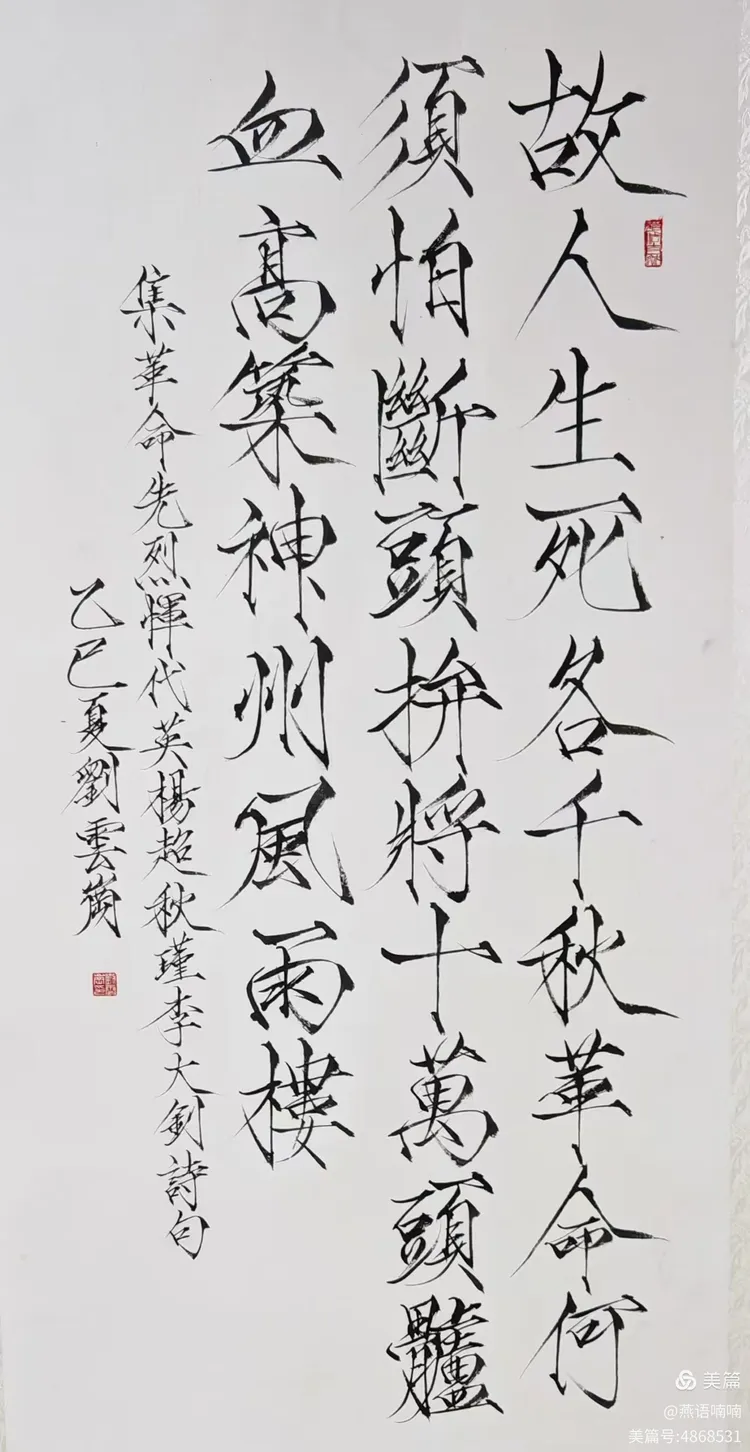 故人生死各千秋革命何
須怕斷頭拚將十萬頭顱
血高築神州風雨樓
集革命先烈惲代英楊超秋瑾李大釗詩句
乙巳夏劉雲嵐
美篇
@燕语喃喃
美篇号:4868531